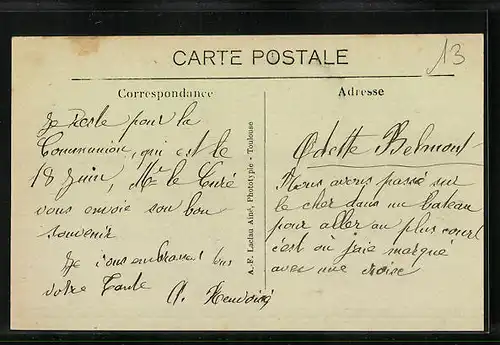 CARTE POSTALE
13
Correspondance
Je reste pour la
Communion, qui est le
18 Juin, Mr le Curé
vous envoie son bon
souvenir
Je vous embrasse bien
votre Tante
A.
A.-F. Laclau Ainé, Phototypie - Toulouse
Adresse
Odette Belmont
Nous avons passé sur
le cher dans un bateau
pour aller au plus court
c'est ou j'aie marqué
avec une croix